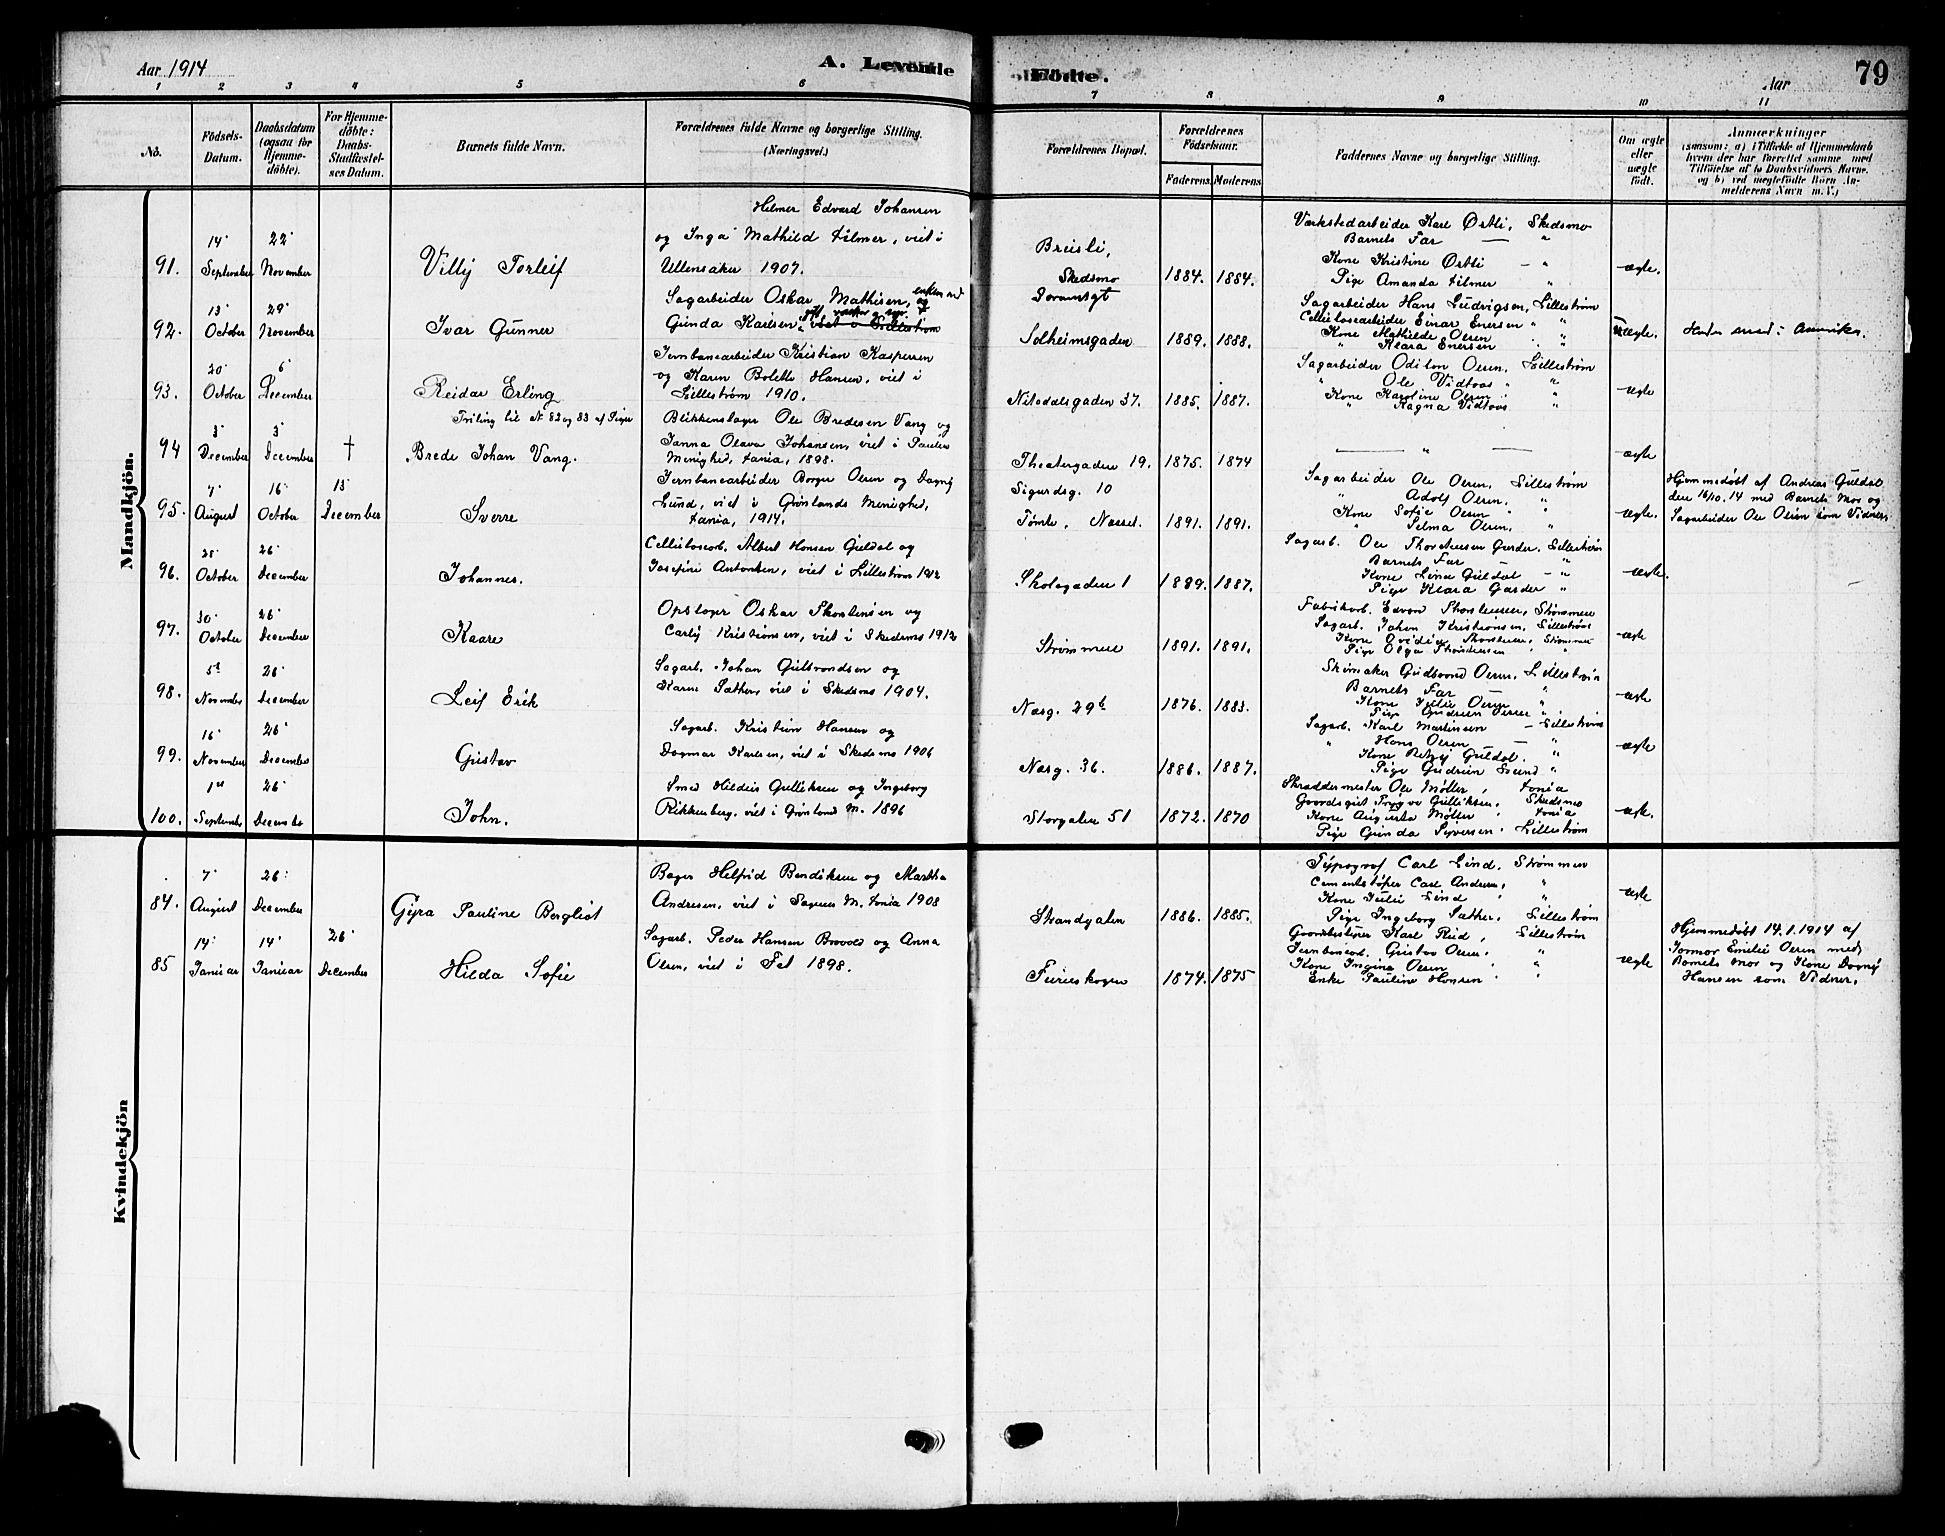 Aar 1914
A. Levende
Födte.
Aar
79
1 2 3 4 5 6 7 8 9 10 11
No.
Födsels-Datum.
Daabsdatum (ogsaa for Hjemme-döbte).
For Hjemme-döbte: Daabs-Stadfæstel-ses Datum.
Barnets fulde Navn.
Forældrenes fulde Navne og borgerlige Stilling.
(Næringsvei.)
Forældrenes Bopæl.
Forældrenes Födselsaar.
Faderens. Moderens.
Faddernes Navne og borgerlige Stilling.
Om ægte eller uægte födt.
Anmærkninger
(saasom: a) i Tilfælde af Hjemmedaab
hvem der har forrettet samme med
Tilföielse af to Daabsvidners Navne.
og b) ved uægtefödte Börn An-
melderens Navn m. V.)
Mandkjön.
91.
14' September
22' November
Villy Torleif
Hilmer Edvard Johansen
og Inga Mathild Filmer, viet i
Ullensaker 1907.
Breisli,
Skedsmo
1884. 1884.
Værkstedarbeider Karl Østli, Skedsmo
Barnets Far — "
Kone Kristine Østli — "
Pige Amanda Filmer "
ægte.
92.
13' October
29' November
Ivar Gunner
Sagarbeider Oskar Mathisen, og
Gunda Karlsen, viet i Lillestrøm
Solheimsgaden
1889. 1888.
Sagarbeider Hans Ludvigsen, Lillestrøm
Cellulosearbeider Einar Enersen " "
Kone Mathilde Olsen "
" Klara Enersen "
Uægte.
93.
20' October
6' December
Reidar Erling
Jernbanearbeider Kristian Kaspersen
og Karen Bolette Hansen, viet i
Lillestrøm 1910.
Nitedalsgaden 37.
1885. 1887.
Sagarbeider Odilon Olsen, Lillestrøm
" Ole Vidtoas "
Kone Karoline Olsen "
" Ragna Vidtoas "
ægte
94
3' December
3' December
†
Trilling til No 82 og 83 af Piger
Brede Johan Vang.
Blikkenslager Ole Bredesen Vang og
Janna Olava Johansen, viet i Paulus
Menighed, Xania, 1898.
Theatergaden 19.
1875. 1874
— " —
ægte
95.
7' August
16' October
13' December
Sverre
Jernbanearbeider Borger Olsen og Dagny
Lund, viet i Grønlands Menighed,
Xania, 1914.
Sigurdsg. 10
Tømte, Næssel.
1891. 1891.
Sagarbeider Ole Olsen, Lillestrøm
" Adolf Olsen, "
Kone Sofie Olsen "
" Selma Olsen, "
ægte.
Hjemmedøbt af Andreas Guldal
den 16/10. 14 med Barnets Mor og
Sagarbeider Ole Olsen som Vidner.
96.
October
26' December
Johannes.
Cellulosearb. Albert Hansen Guldal og
Josefine Antonsen, viet i Lillestrøm 1912
Skolegaden 1
1889. 1887.
Sagarb. Ole Thorstensen Garder, Lillestrøm
Barnets Far — "
Kone Lina Guldal — "
Pige Klara Garder "
ægte.
97.
30' October
26' December
Kaare
Opslager Oskar Thorstensen og
Carly Kristiansen, viet i Skedsmo 1912
Strømmen
1891. 1891.
Fabrikarb. Edvard Thorstensen, Strømmen
Sagarb. Johan Kristiansen, Lillestrøm
Kone Ovidia Thorstensen, Strømmen
Pige Olga Thorstensen "
ægte
98.
5te November
26' December
Leif Erik
Sagarb. Johan Gulbrandsen og
Karen Sæther, viet i Skedsmo 1904.
Næsg. 29b
1876. 1883.
Skomaker Gudbrand Olsen, Lillestrøm
Barnets Far — "
Kone Julie Olsen "
Pige Gudrun Olsen "
ægte
99.
16' November
26' December
Gustav
Sagarb. Kristian Hansen og
Dagmar Karlsen, viet i Skedsmo 1906
Næsg. 36.
1886. 1887.
Sagarb. Karl Martinsen — Lillestrøm
" Hans Olsen — "
Kone Betzy Guldal. "
Pige Gudrun Lund "
ægte
100.
1ste September
26' December
John.
Smed Hildeus Gulliksen og Ingeborg
Rikkenberg, viet i Grønland M. 1896
Storgaten 51
1872. 1870
Skræddermester Ole Møller, Xania
Gaardsgut Trygve Gulliksen, Skedsmo
Kone Augusta Møller Xania
Pige Gunda Syversen, Lillestrøm
ægte.
Kvindekjön
84.
7' August
26' December
Gyra Pauline Bergliot
Bager Helfrid Bendiksen og Martha
Andresen, viet i Sagenes M. Xania 1908
Strandgaten
1886. 1885.
Typograf Carl Lind, Strømmen
Cementstøper Carl Andresen, "
Kone Julie Lind "
Pige Ingeborg Sæther, Lillestrøm
ægte
85
14' Januar
14' Januar
26' December
Hilda Sofie
Sagarb. Peder Hansen Brovold og Anna
Olsen, viet i Fet 1898.
Furuskogen
1874. 1875
Gaardbestyrer Karl Ruud, Lillestrøm
Jernbanearb. Gustav Olsen, "
Kone Ingine Olsen "
Enke Pauline Hansen "
ægte
Hjemmedøbt 14.1.1914 af
Jormor Emilie Olsen med
Barnets Mor og Kone Dagny
Hansen som Vidner.